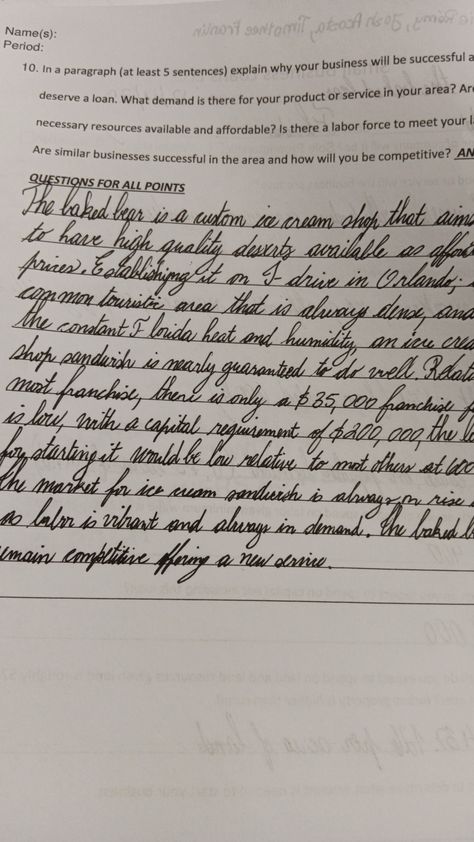 Name(s):
Period:
10. In a paragraph (at least 5 sentences) explain why your business will be successful a
deserve a loan. What demand is there for your product or service in your area? Are
necessary resources available and affordable? Is there a labor force to meet your
Are similar businesses successful in the area and how will you be competitive? AN
QUESTIONS FOR ALL POINTS
The baked bear is a custom ice cream shop that aims
to have high quality desserts available as
prices. Establishing it on I drive in Orlando;
common touristic area that is always dense, and
the constant Florida heat and humidity, an ice crea
shop sandwish is nearly guaranteed to do well. Relat
most franchise, there is only a $35,000 franchise f
is low, with a capital requirement of $200,000, the
for starting it would be low relative to most others at
the market for ice cream sandwish is always on rise
as labor is vibrant and always in demand. The baked b
emain competitive offering a new service.